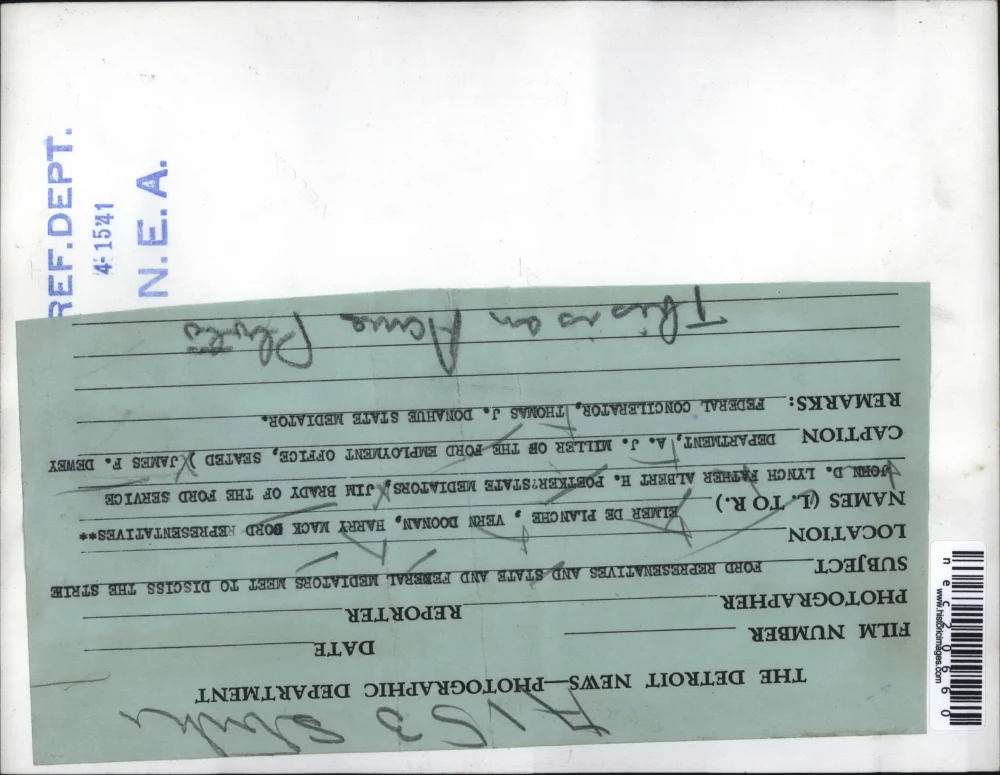 REF. DEPT.
4-15 '41
N. E. A.
THE DETROIT NEWS—PHOTOGRAPHIC DEPARTMENT
FILM NUMBER DATE
PHOTOGRAPHER REPORTER
SUBJECT FORD REPRESENATIVES AND STATE AND FEDERAL MEDIATORS MEET TO DISCISS THE STRIE
LOCATION
NAMES (L. TO R.) ELMER DE PLANCHE , VERN DOONAN, HARRY MACK FORD REPRESENTATIVES**
JOHN D. LYNCH FATHER ALBERT H. POETKER?STATE MEDIATORS, JIM BRADY OF THE FORD SERVICE
CAPTION DEPARTMENT, A. J. MILLER OF THE FORD EMPLOYMENT OFFICE, SEATED ) JAMES F. DEWEY
REMARKS: FEDERAL CONCILERATOR, THOMAS J. DONAHUE STATE MEDIATOR.
This is an Acme Photo
nec20660
www.historicimages.com